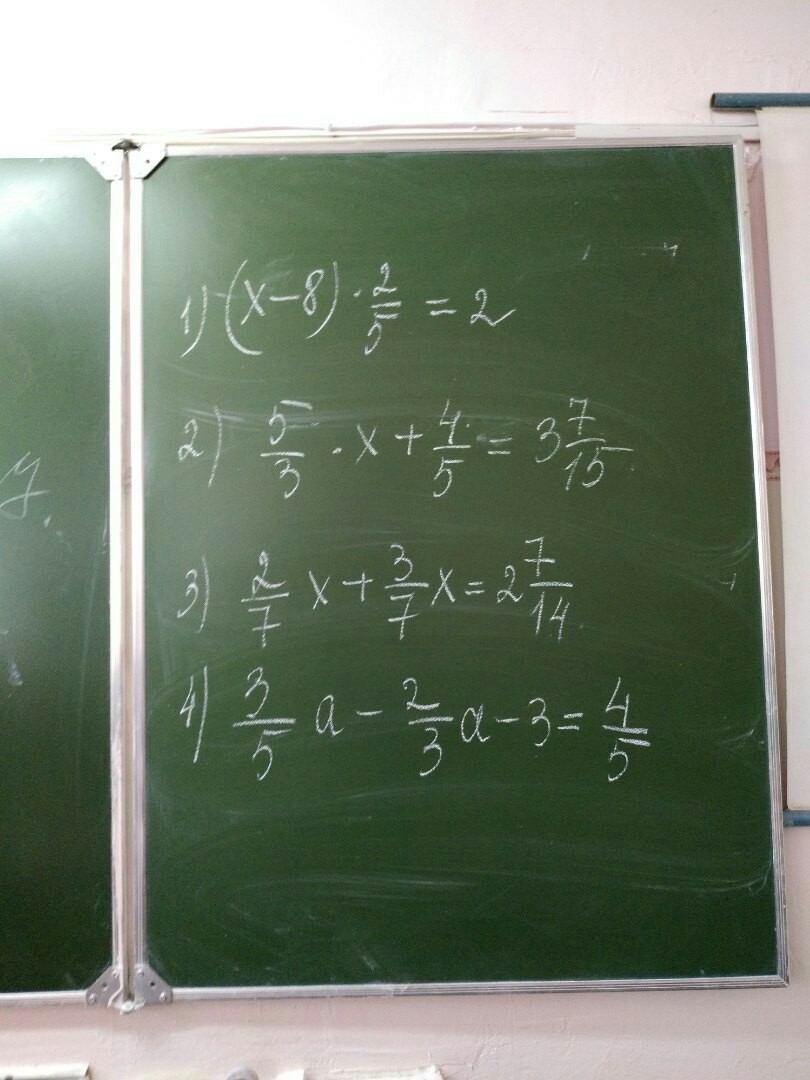 1) (x-8) · 2/5 = 2
2) 5/3 · x + 4/5 = 3 7/15
3) 2/7 x + 3/7 x = 2 7/14
4) 3/5 a - 2/3 a - 3 = 4/5